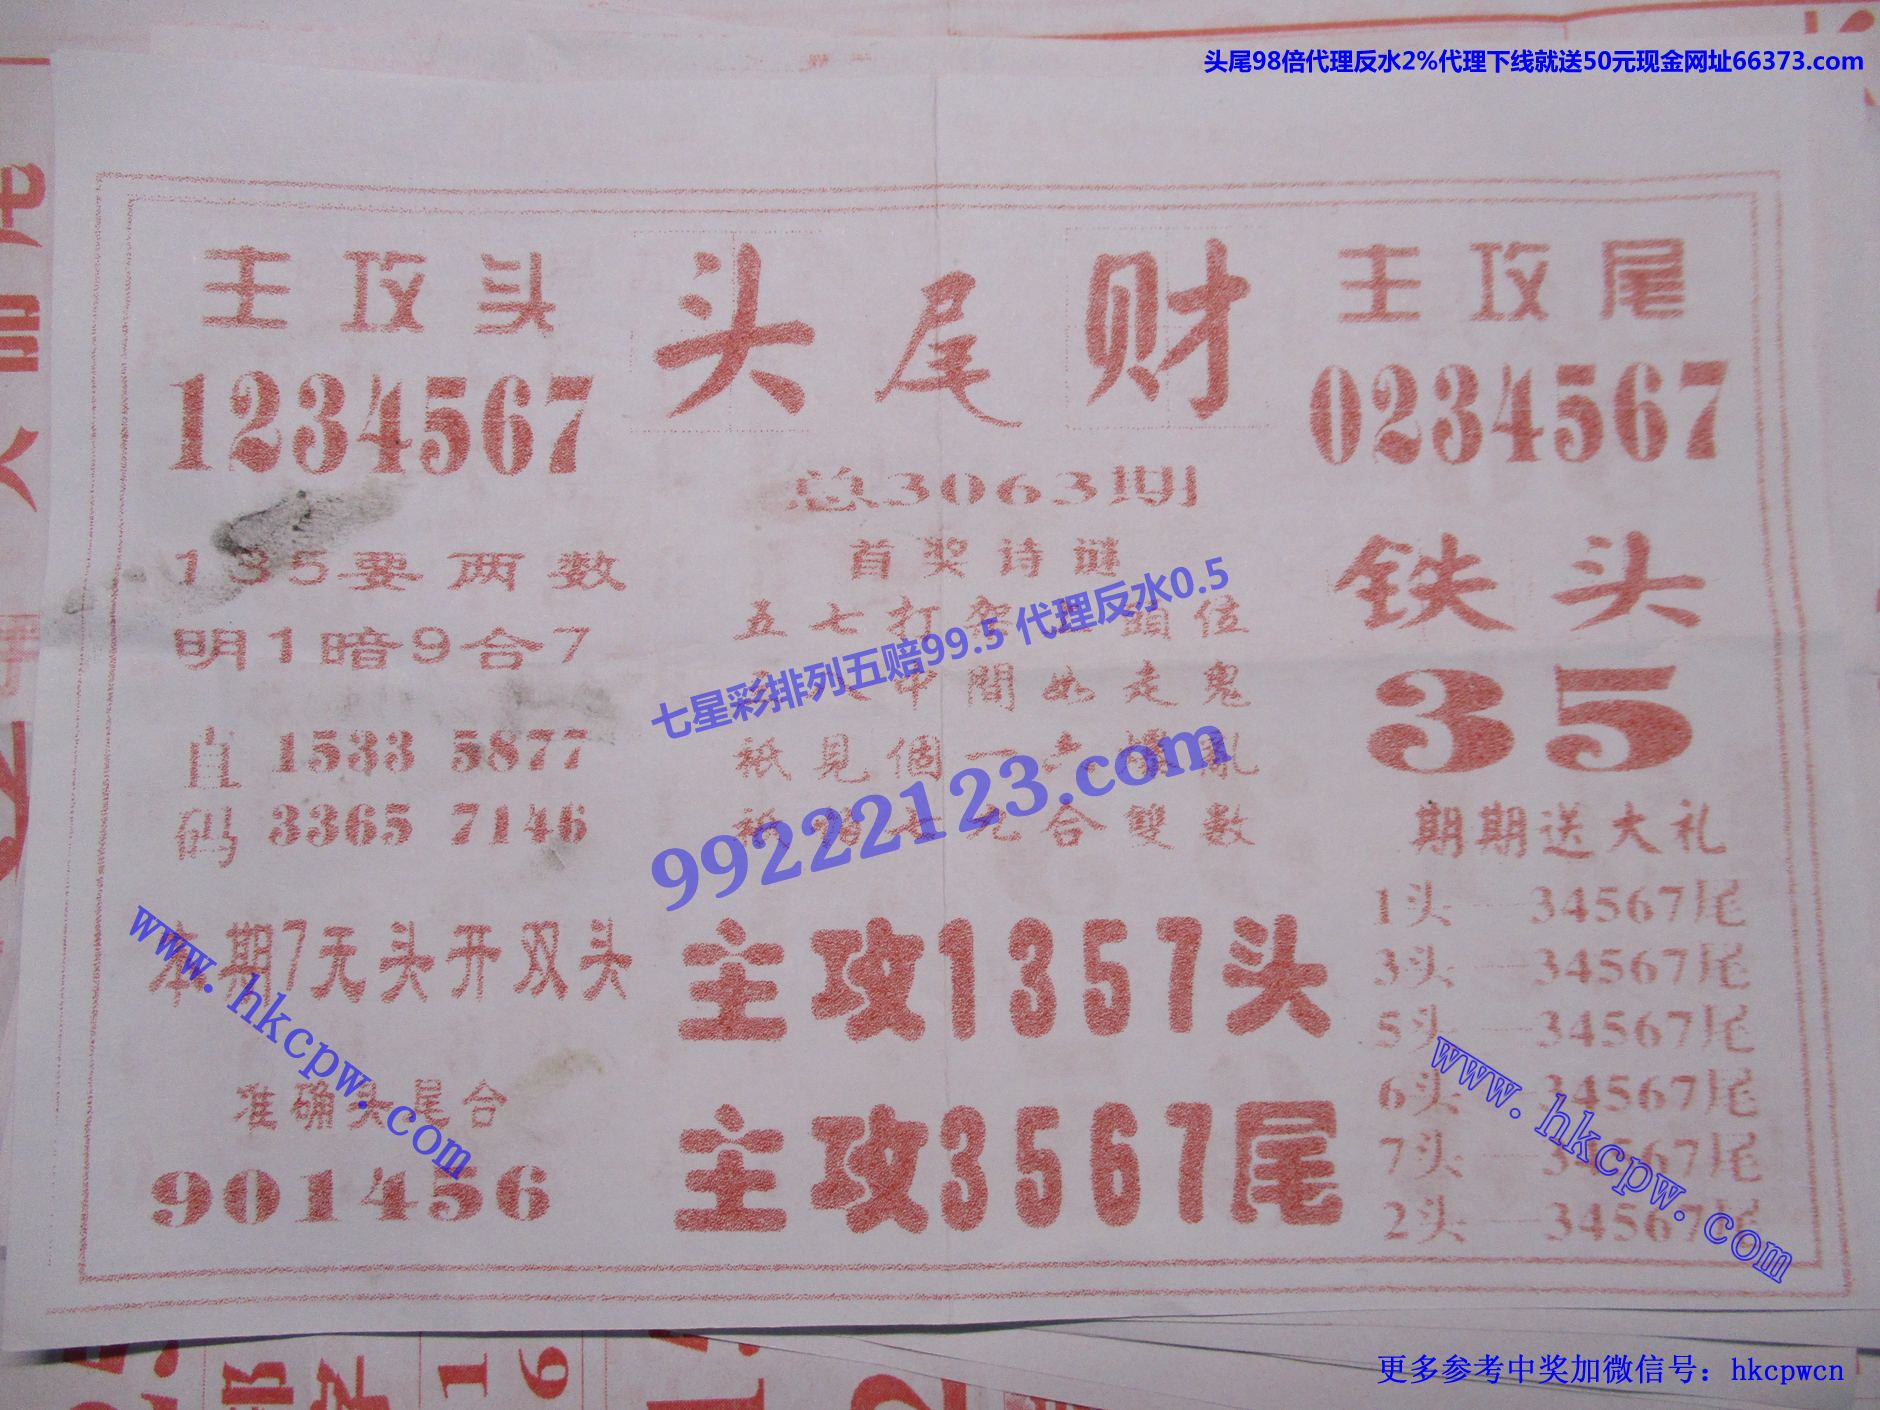 头尾98倍代理反水2%代理下线就送50元现金网址66373.com
主攻头
1234567
头尾财
主攻尾
0234567
总3063期
首奖诗谜
五七打架 頭位
中間如走鬼
祇見個一六 亂
九合雙數
七星彩排列五赔99.5 代理反水0.5
99222123.com
135要两数
明1暗9合7
直码
1533 5877
3365 7146
铁头
35
期期送大礼
1头—34567尾
3头—34567尾
5头—34567尾
6头—34567尾
7头—34567尾
2头—34567尾
本期7天头开双头
www.hkcpw.com
准确头尾合
901456
主攻1357头
主攻3567尾
www.hkcpw.com
16
更多参考中奖加微信号：hkcpwcn